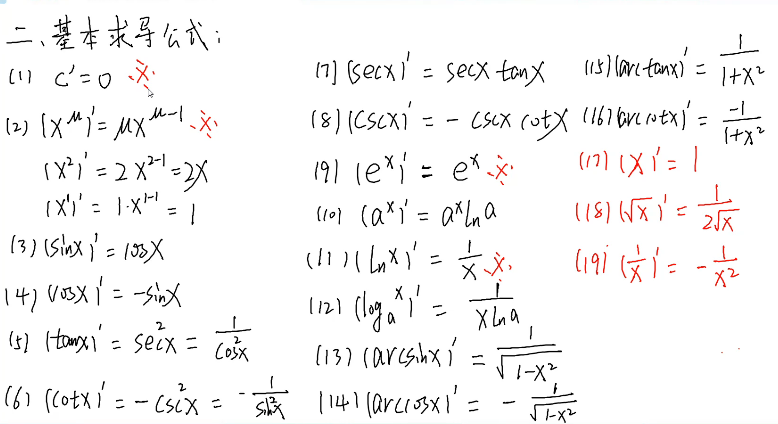 二、基本求导公式：
(1) C' = 0 ※
(2) (x^μ)' = μx^(μ-1) ※
(x²)' = 2x^(2-1) = 2x
(x')' = 1·x^(1-1) = 1
(3) (sinx)' = cosx
(4) (cosx)' = -sinx
(5) (tanx)' = sec²x = 1/cos²x
(6) (cotx)' = -csc²x = -1/sin²x
(7) (secx)' = secx tanx
(8) (cscx)' = -cscx cotx
(9) (e^x)' = e^x ※
(10) (a^x)' = a^x ln a
(11) (ln x)' = 1/x ※
(12) (log_a^x)' = 1/(x ln a)
(13) (arcsinx)' = 1/√(1-x²)
(14) (arccosx)' = -1/√(1-x²)
(15) (arctanx)' = 1/(1+x²)
(16) (arccotx)' = -1/(1+x²)
(17) (x)' = 1
(18) (√x)' = 1/(2√x)
(19) (1/x)' = -1/x²